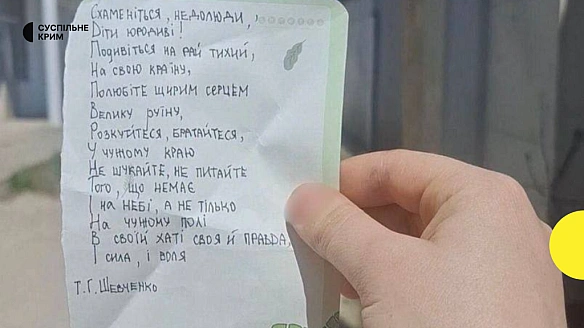 СУСПІЛЬНЕ
КРИМ
Схаменіться, недолюди,
Діти юродиві!
Подивіться на рай тихий,
На свою країну,
Полюбіте щирим серцем
Велику руїну,
Розкуйтеся, братайтеся,
У чужому краю
Не шукайте, не питайте
Того, що немає
І на небі, а не тілько
На чужому полі
В своїй хаті своя й правда,
І сила, і воля
Т.Г. Шевченко